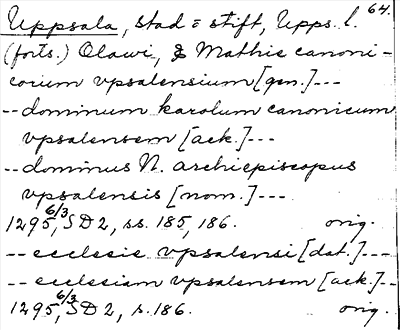 64.
Uppsala, stad o stift, Upps. l.
(forts.) Olawi, & Mathie canoni-
corum vpsalensium [gen.] ---
-- dominum karolum canonicum
vpsalensem [ack.] ---
-- dominus N. archiepiscopus
vpsalensis [nom.] ---
1295 6/3, SD 2, ss. 185, 186. orig.
-- ecclesie vpsalensi [dat.] ---
-- ecclesiam vpsalensem [ack.] --
1295 6/3, SD 2, s. 186. orig.